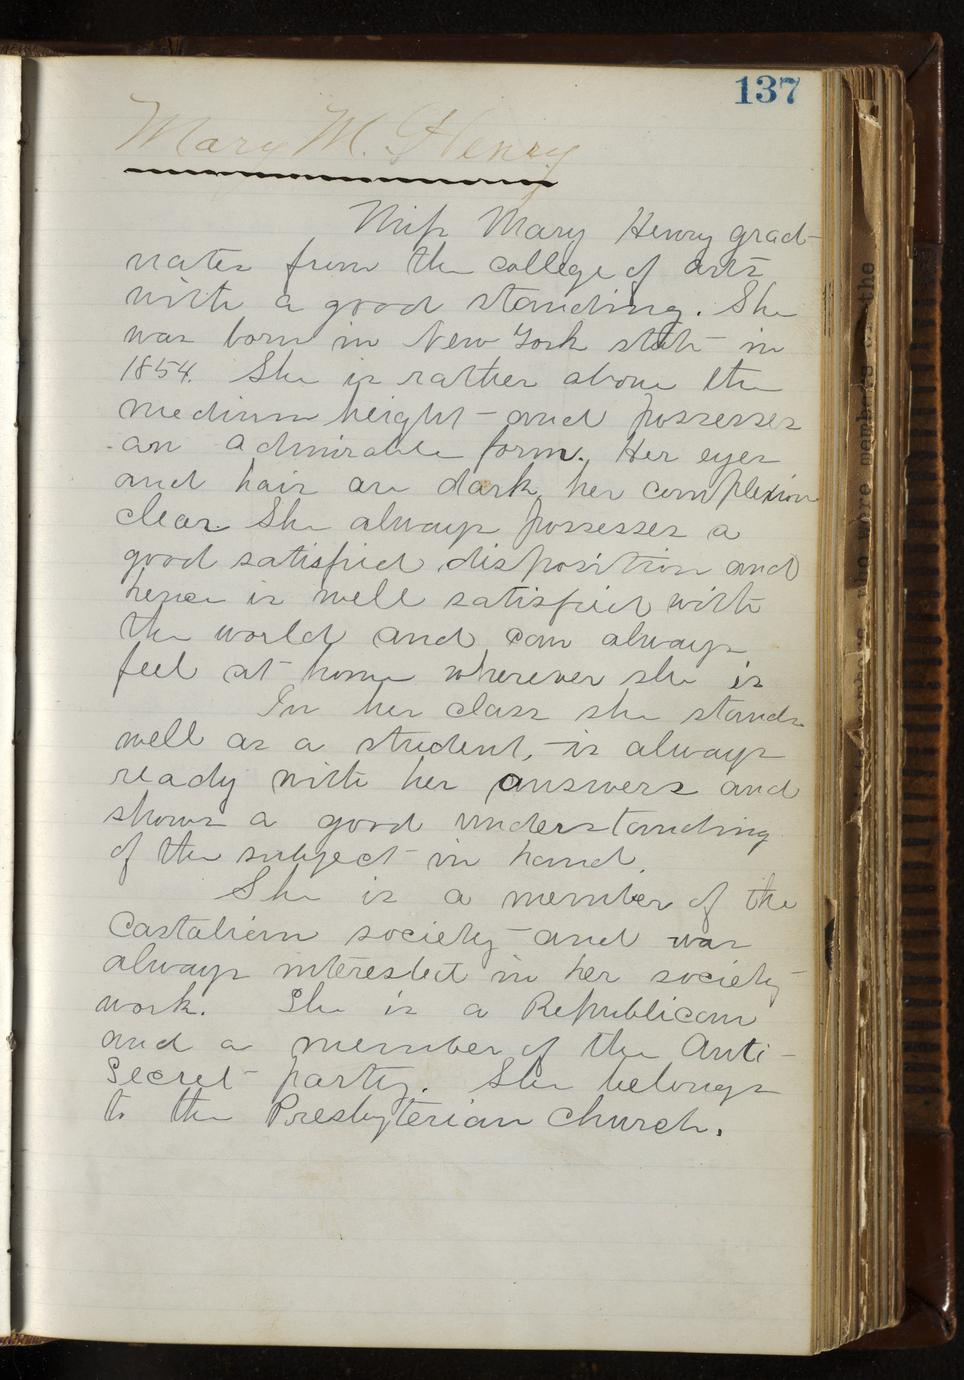 137
Mary M. Henry
Miss Mary Henry grad-
uates from the college of arts
with a good standing. She
was born in New York state in
1854. She is rather above the
medium height and possesses
an admirable form. Her eyes
and hair are dark, her complexion
clear. She always possesses a
good satisfied disposition and
hence is well satisfied with
the world and can always
feel at home wherever she is
In her class she stands
well as a student, is always
ready with her answers and
shows a good understanding
of the subject in hand.
She is a member of the
Castalian society and was
always interested in her society
work. She is a Republican
and a member of the Anti-
Secret party. She belongs
to the Presbyterian Church.
who were members of the